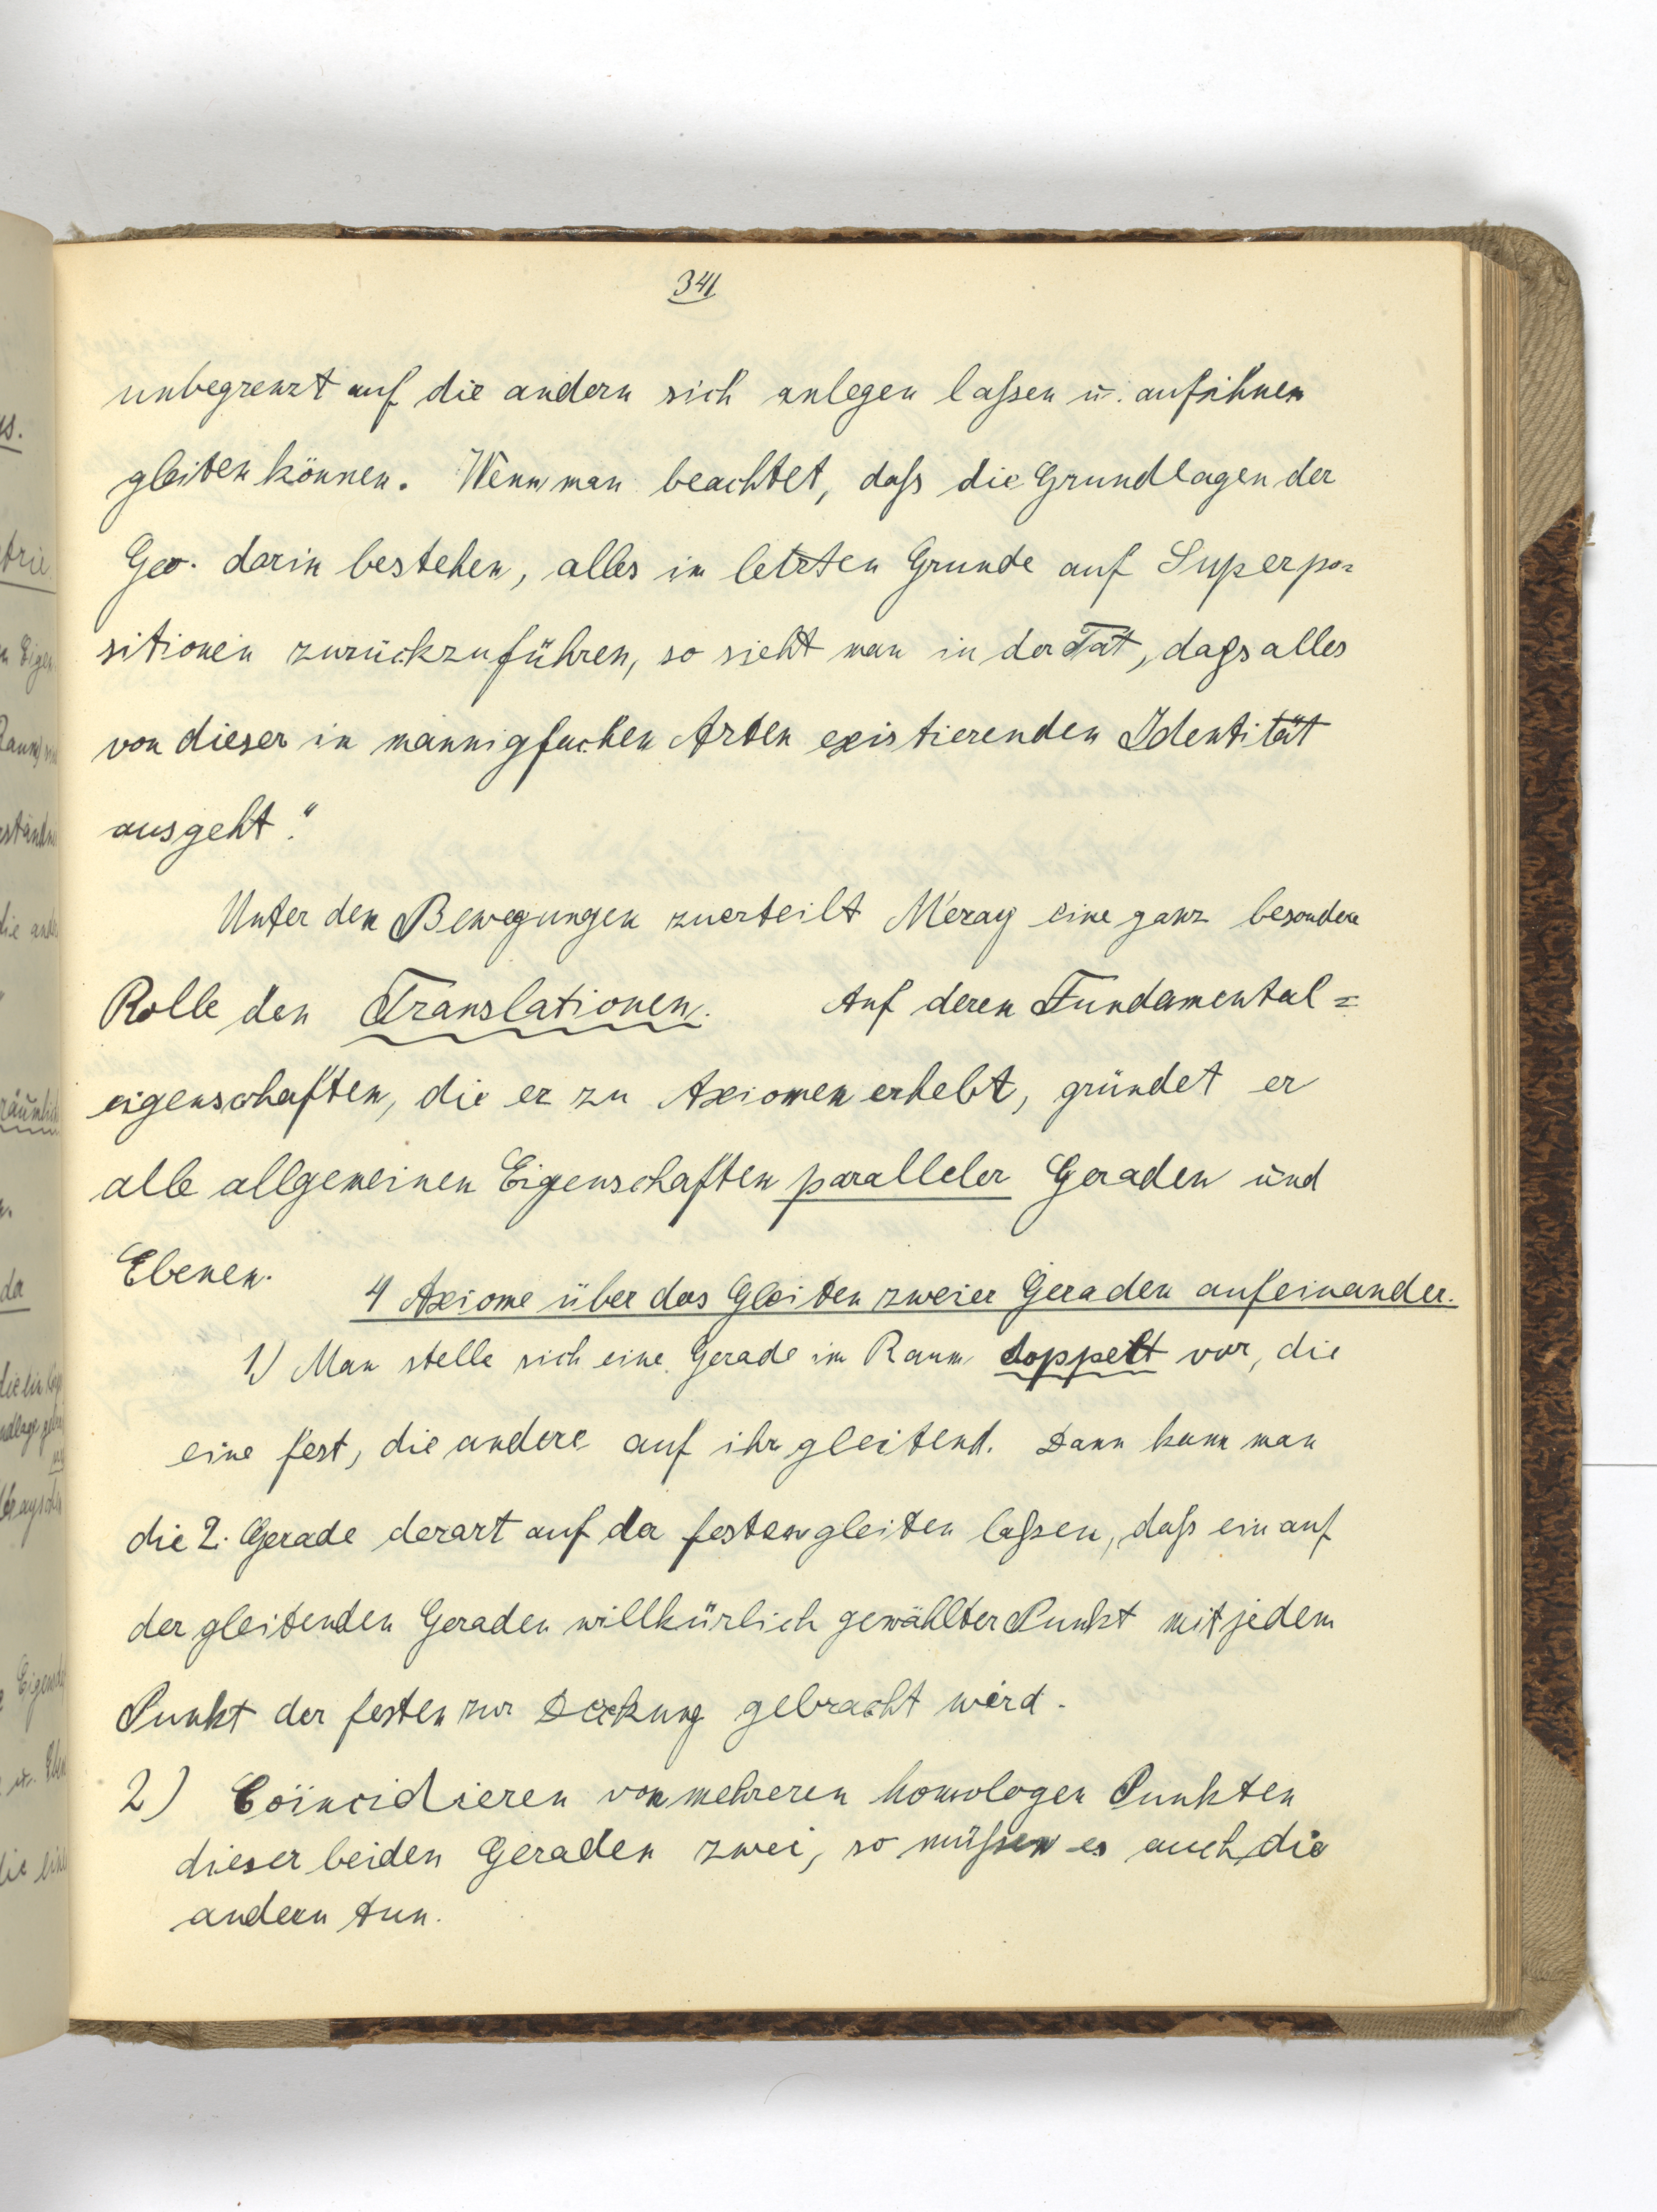 341
unbegrenzt auf die andern sich anlegen laßen u. auf ihnen
gleiten können. Wenn man beachtet, daß die Grundlagen der
Geo. darin bestehen, alles im letzten Grunde auf Superpo=
sitionen zurückzuführen, so sieht man in der Tat, dass alles
von dieser in mannigfachen Arten existierenden Identität
ausgeht."
Unter den Bewegungen zuerteilt Méray eine ganz besondere
Rolle den Translationen. Auf deren Fundamental=
eigenschaften, die er zu Axiomen erhebt, gründet er
alle allgemeinen Eigenschaften paralleler Geraden und
Ebenen.
4 Axiome über das Gleiten zweier Geraden aufeinander.
1.) Man stelle sich eine Gerade im Raum doppelt vor, die
eine fest, die andere auf ihr gleitend. Dann kann man
die 2. Gerade derart auf der festen gleiten laßen, daß ein auf
der gleitenden Geraden willkürlich gewählter Punkt mit jedem
Punkt der festen zur Deckung gebracht wird.
2) Coïncidieren von mehreren homologen Punkten
dieser beiden Geraden zwei, so müßen es auch die
andern tun.